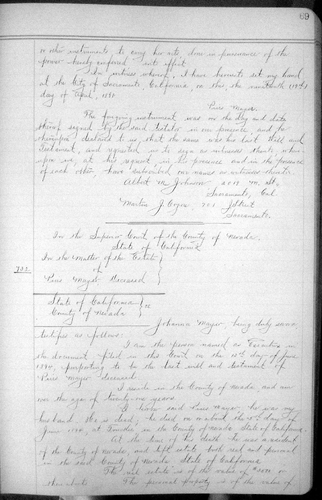 69
or other instruments to carry her into due in pursuance of the
power hereby conferred into effect.
In witness whereof, I have hereunto set my hand
at the City of Sacramento, California, on this the
day of April, 189
Peter Mayer.
The foregoing instrument was on the day and date
thereof signed by the said testator in our presence, and he
declared to us, that the same was his last Will and
Testament, and requested us to sign as witnesses thereto, where
upon we, at his request, in his presence and in the presence
of each other, have subscribed our names as witnesses thereto.
Albert M. Johnson M. St.,
Sacramento, Cal.
Martin J. St
Sacramento.
In the Superior Court of the County of Nevada,
State of California
In the Matter of the Estate
of
Mayer Deceased
State of California
County of Nevada ss
Johanna Mayer, being duly sworn,
testifies as follows:
I am the person named as Executrix in
the document filed in this Court on the day of June
189, purporting to be the last will and testament of
Mayer deceased.
I reside in the County of Nevada, and am
over the age of twenty-one years.
I knew said Mayer, he was my
husband. He is dead; he died on or about the day of
June 189, at Truckee in the County of Nevada State of California.
At the time of his death he was a resident
of the County of Nevada, and left estate both real and personal
in the said County of Nevada State of California.
The real estate is of the value of
The personal property is of the value of